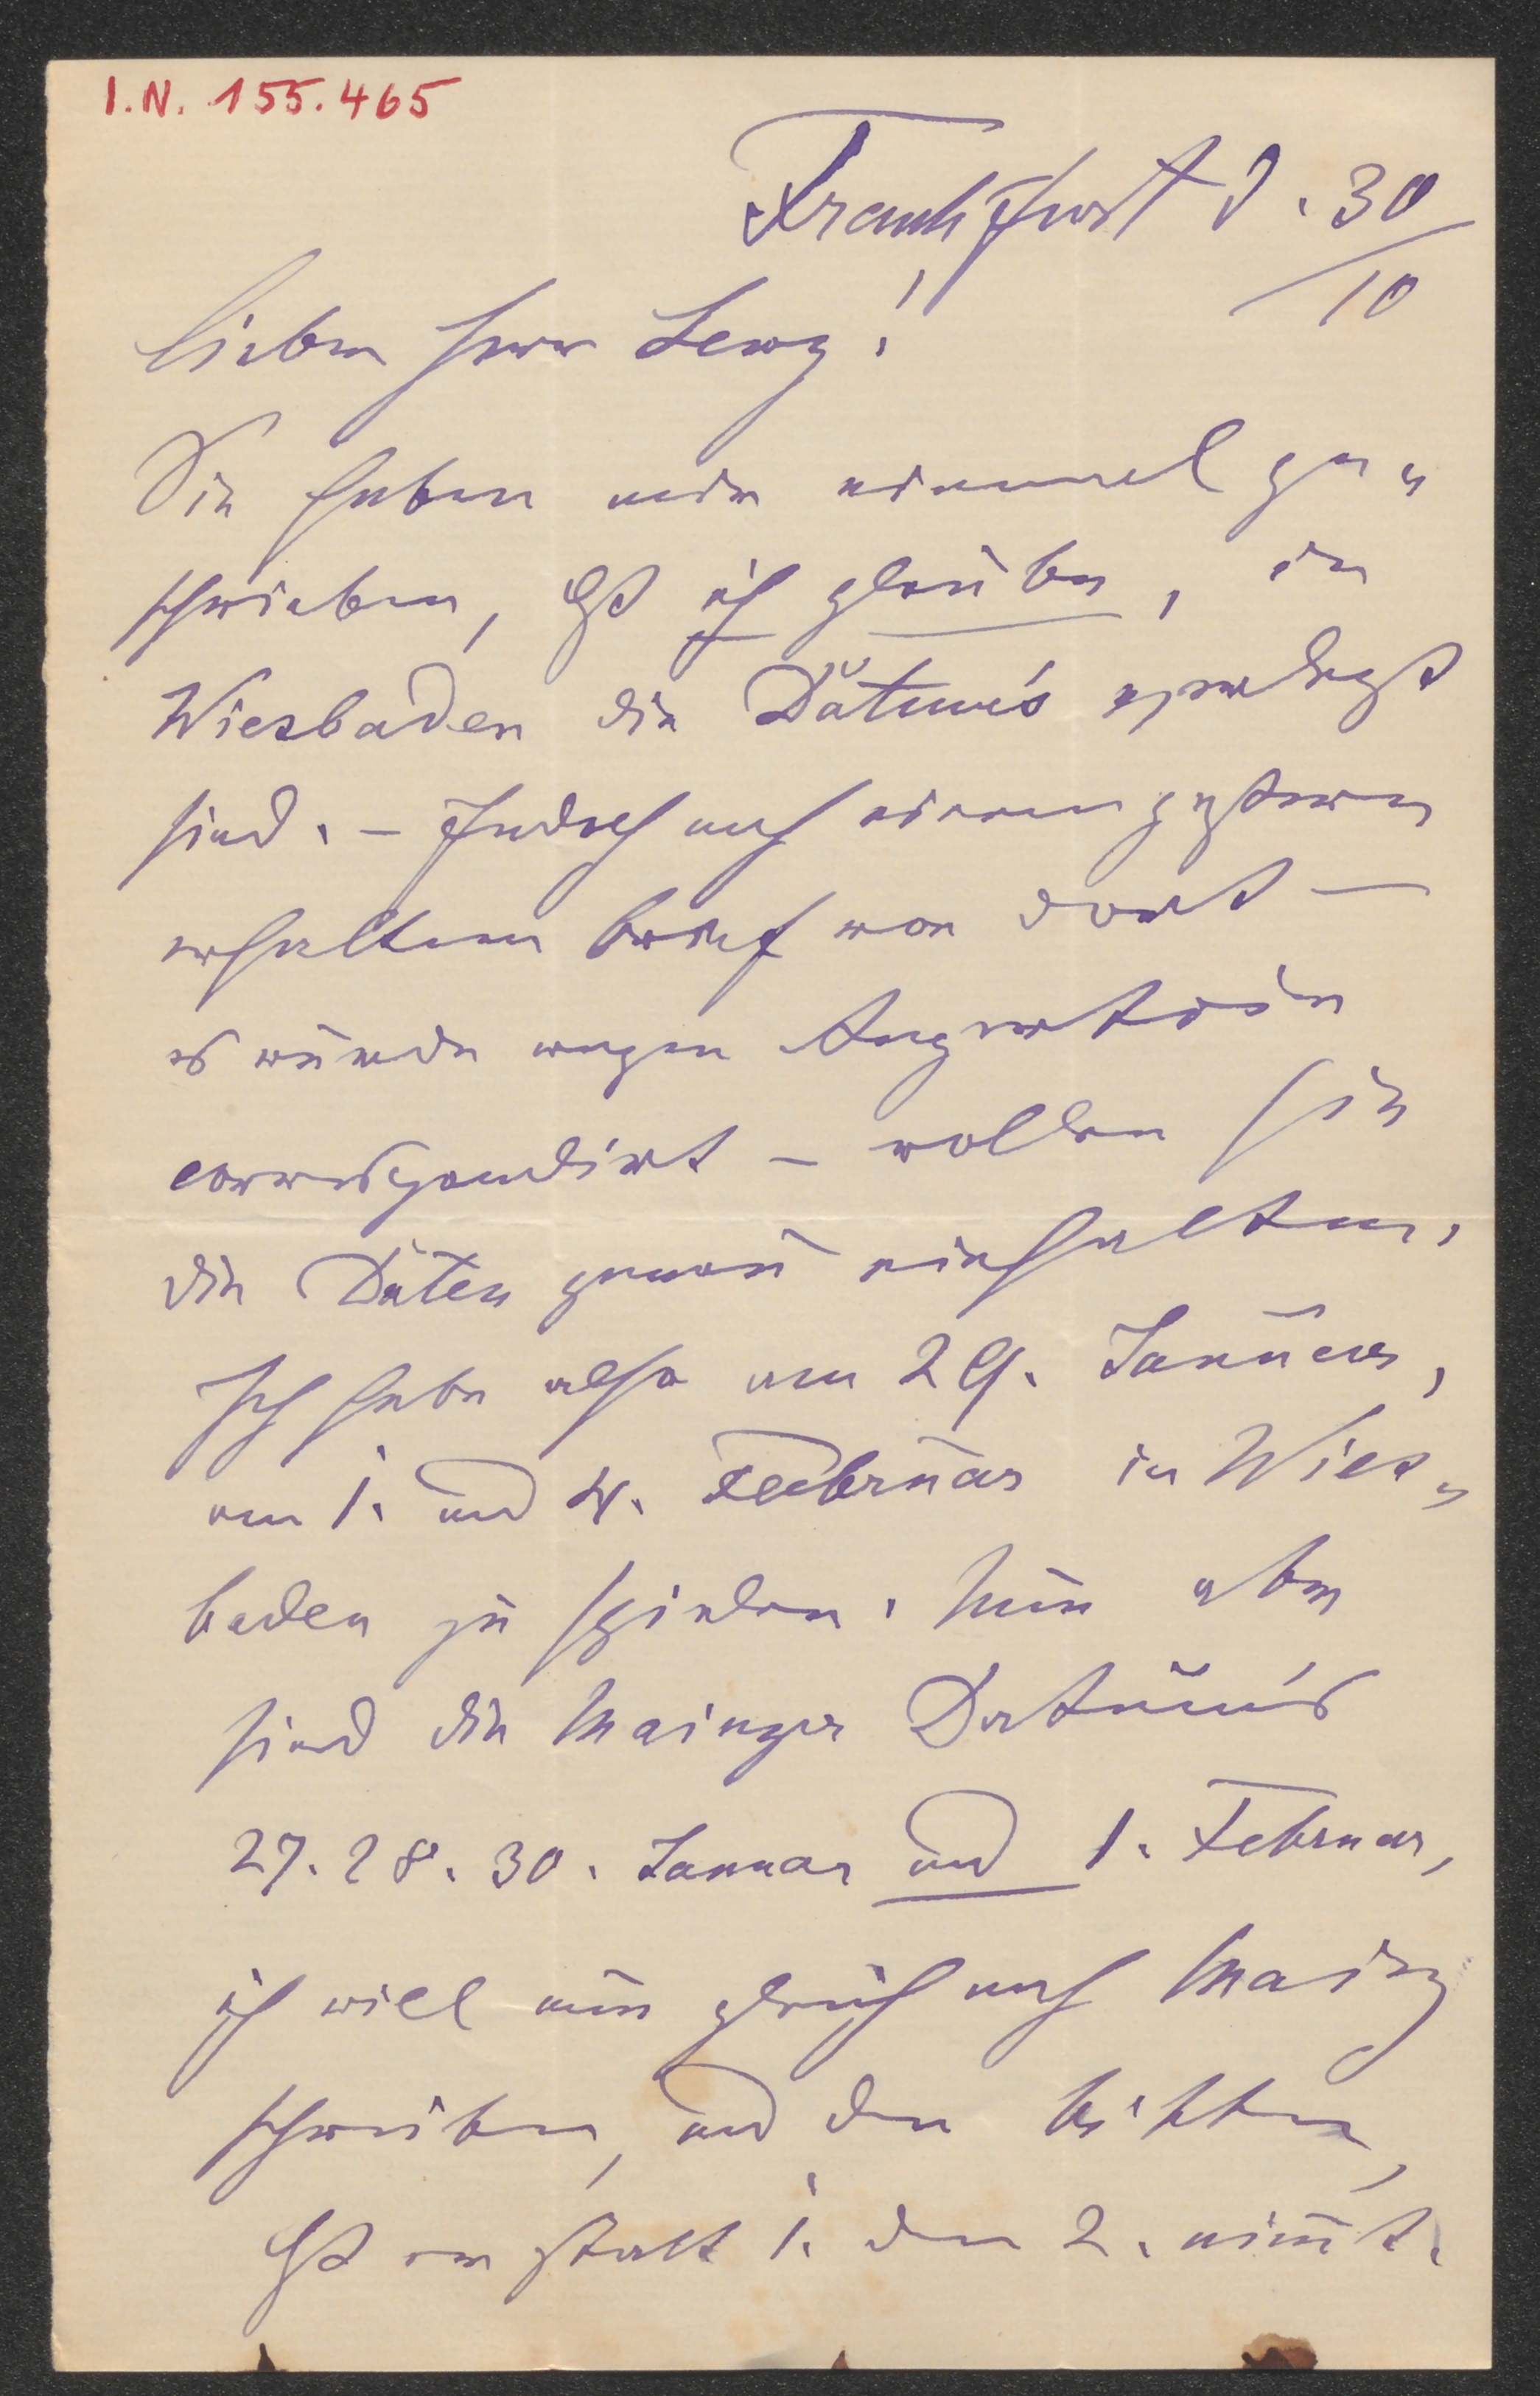 I.N. 155.465
Frankfurt d. 30
/10
Lieber Herr Lewy!
Sie haben mir einmal ge„
schrieben, daß ich glaube, in
Wiesbaden die Datum's
sind. – Jedoch nach einem gestern
erhaltenen Brief von dort –
es wurde wegen
correspondirt – wollen sie
die Daten genau einhalten.
Ich habe also am 29. Januar,
am 1. und 4. Februar in Wies„
baden zu spielen. Nun aber
sind die Mainzer Datum's
27. 28. 30. Januar und 1. Februar,
ich will nun gleich nach Mainz
schreiben, und den bitten,
daß er statt 1. den 2. nim̄t.